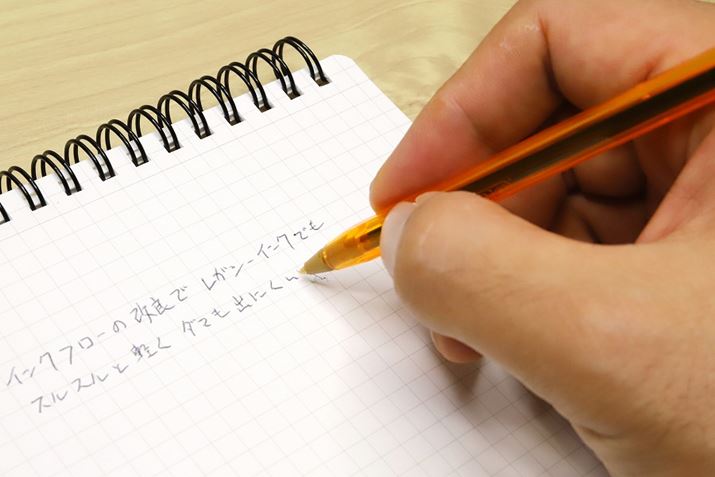 インクフローの改良でレガシーインクでも
スルスルと軽くダマも出にくい